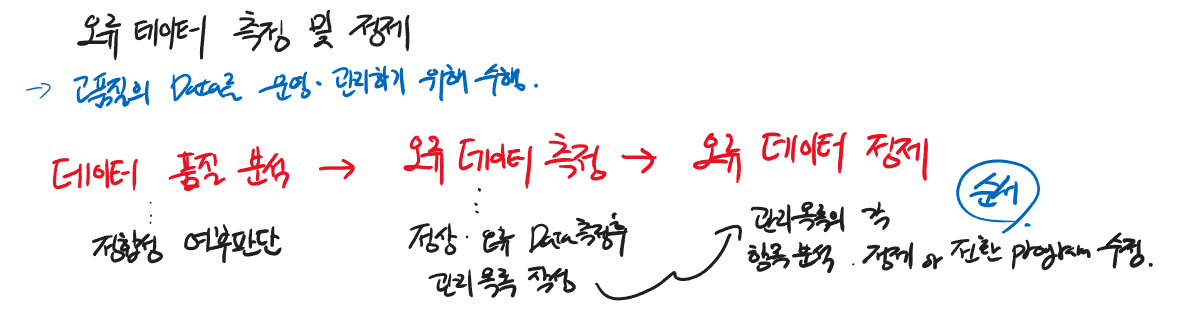 오류 데이터 측정 및 정제
→ 고품질의 Data를 운영·관리하기 위해 수행.
데이터 품질 분석 → 오류 데이터 측정 → 오류 데이터 정제
순서
정합성 여부판단
정상·오류 Data 측정후
관리 목록 작성
관리목록의 각
항목 분석. 정제 or 전환 program 수정.